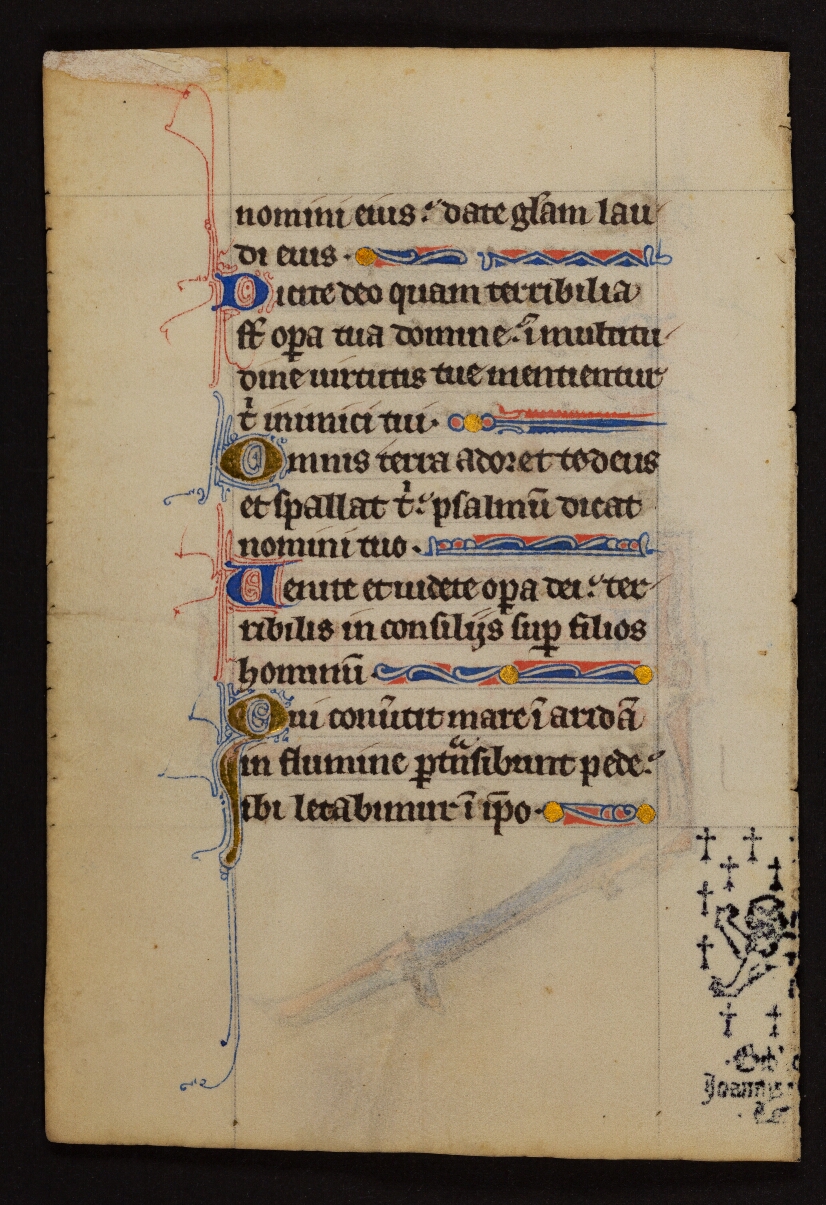 nomini eius: date gl̄am lau
di eius.
Dicite deo quam terribilia
st̄ oꝑa tua domine: ī multitu
dine uirtutis tue mentientur
tⁱ inimici tui.
Omnis terra adoret te deus
et spallat tⁱ: psalmū dicat
nomini tuo.
Uenite et uidete oꝑa dei: ter
ribilis in consilijs suꝑ filios
hominū
Qui conu̅tit mare ī aridā
in flumine ꝑtͣnsibunt pede:
ibi letabimur ī ip̄o.
Joannis